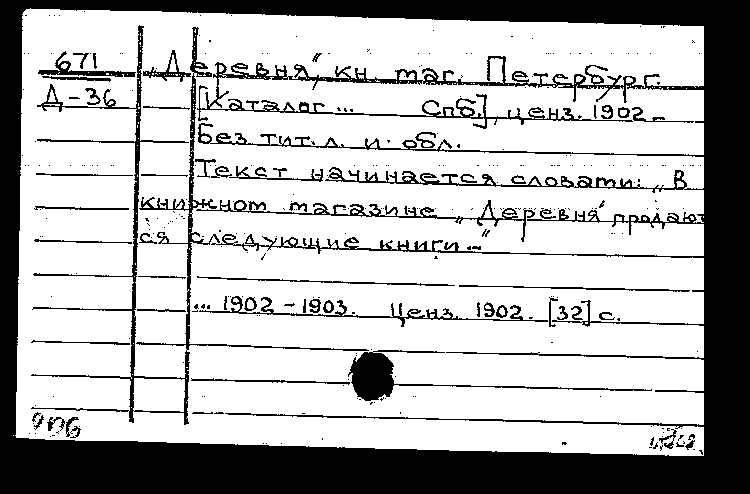 671 „Деревня", кн. маг. Петербург.
Д-36 [Каталог ... Спб.], ценз. 1902 -
Без тит. л. и обл.
Текст начинается словами: „В
книжном магазине „Деревня" продают
ся следующие книги..."
... 1902 - 1903. Ценз. 1902. [32] с.